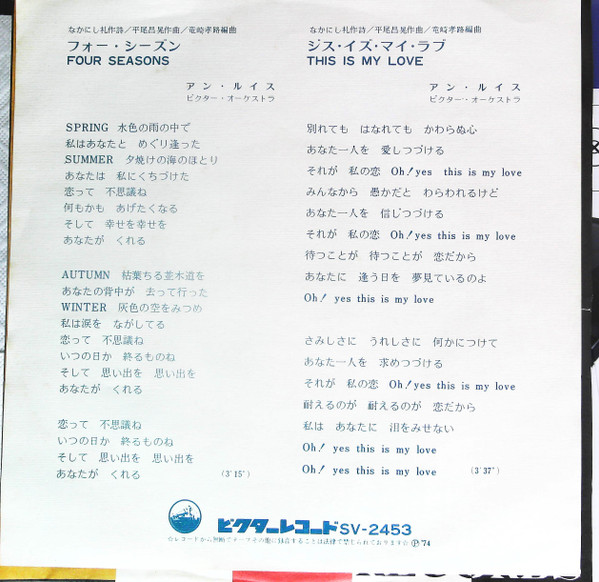 なかにし礼作詩／平尾昌晃作曲／竜崎孝路編曲
フォー・シーズン
FOUR SEASONS
アン・ルイス
ビクター・オーケストラ
SPRING 水色の雨の中で
私はあなたと めぐり逢った
SUMMER 夕焼けの海のほとり
あなたは 私にくちづけた
恋って 不思議ね
何もかも あげたくなる
そして 幸せを幸せを
あなたが くれる
AUTUMN 枯葉ちる並木道を
あなたの背中が 去って行った
WINTER 灰色の空をみつめ
私は涙を ながしてる
恋って 不思議ね
いつの日か 終るものね
そして 思い出を 思い出を
あなたが くれる
恋って 不思議ね
いつの日か 終るものね
そして 思い出を 思い出を
あなたが くれる (3'15")
なかにし礼作詩／平尾昌晃作曲／竜崎孝路編曲
ジス・イズ・マイ・ラブ
THIS IS MY LOVE
アン・ルイス
ビクター・オーケストラ
別れても はなれても かわらぬ心
あなた一人を 愛しつづける
それが 私の恋 Oh! yes this is my love
みんなから 愚かだと わらわれるけど
あなた一人を 信じつづける
それが 私の恋 Oh! yes this is my love
待つことが 待つことが 恋だから
あなたに 逢う日を 夢見ているのよ
Oh! yes this is my love
さみしさに うれしさに 何かにつけて
あなた一人を 求めつづける
それが 私の恋 Oh! yes this is my love
耐えるのが 耐えるのが 恋だから
私は あなたに 泪をみせない
Oh! yes this is my love
Oh! yes this is my love (3'37")
ビクターレコード SV-2453
☆レコードから無断でテープその他に録音することは法律で禁じられております☆ Ⓟ74